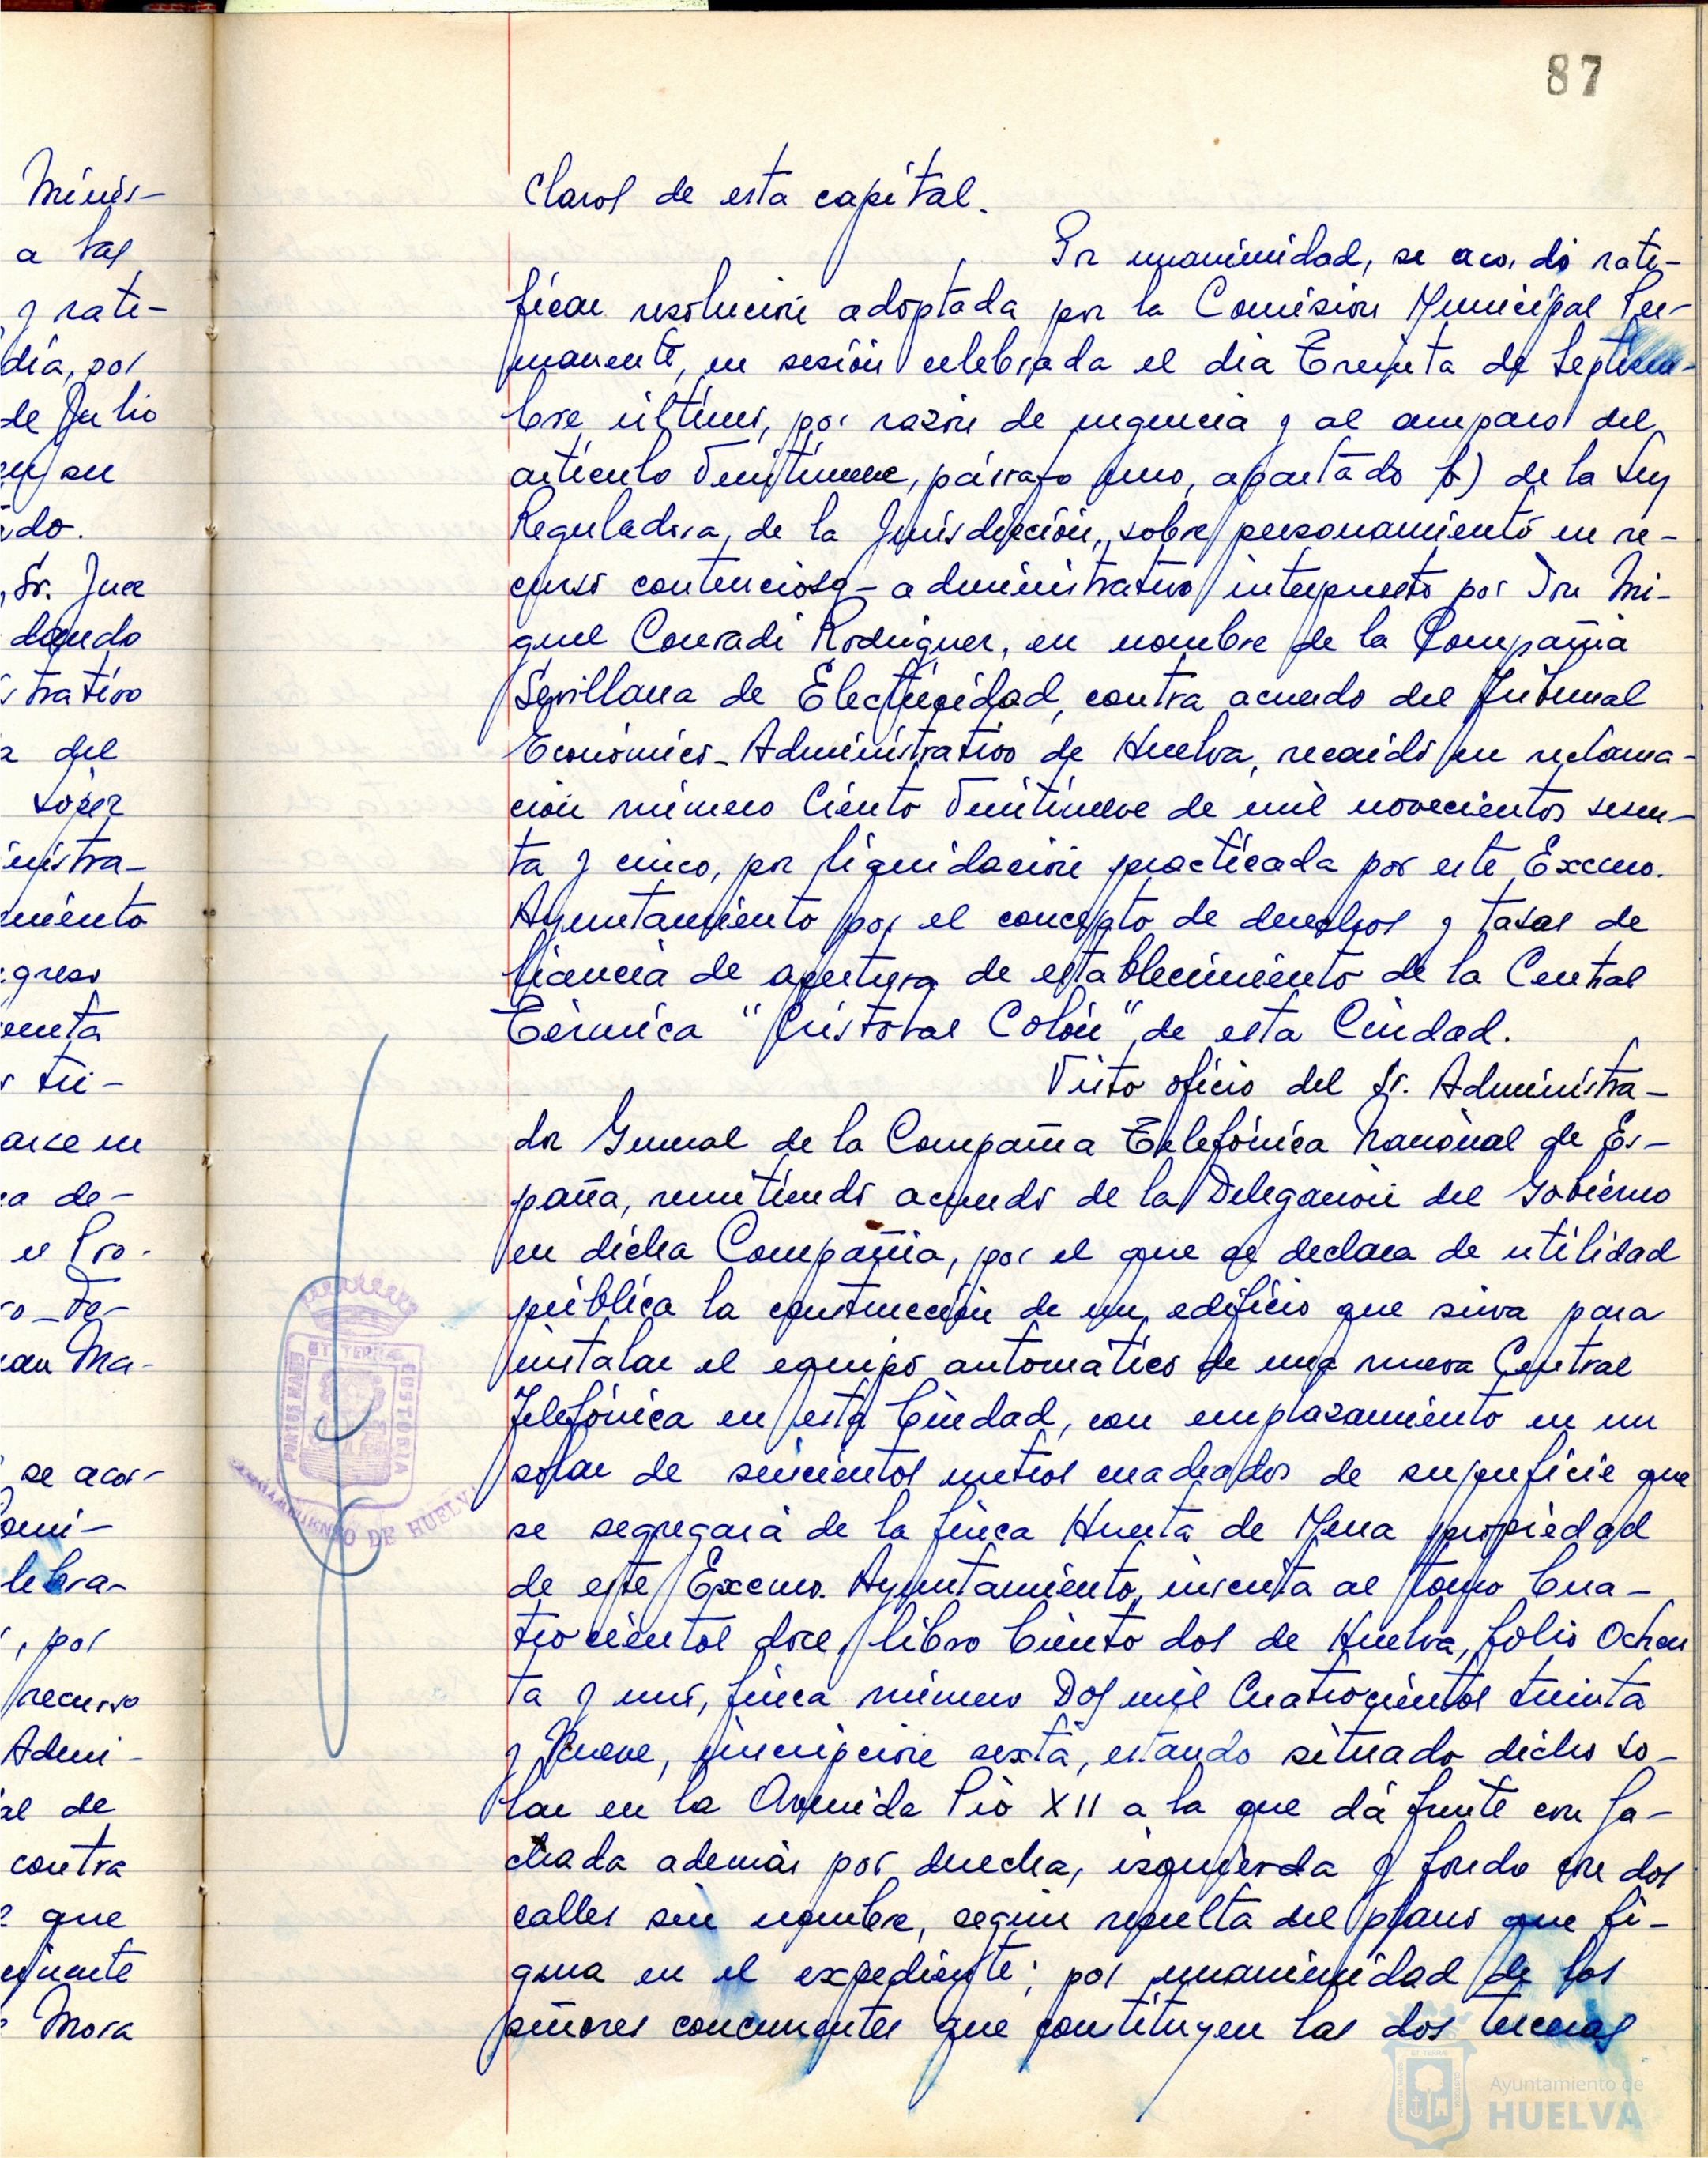 87
Minis-
a las
y rate-
día, por
de Julio
en su
do.
Sr. Juez
dando
trativo
a del
López
nistra-
miento
greso
enta
s tri-
arse en
ca de-
el Pro-
ro-De-
uan Ma-
se acor-
omi-
lebra-
, por
recurso
Admi-
al de
contra
que
cinante
Mora
claros de esta capital.
Por unanimidad, se acordó rati-
ficar resolución adoptada por la Comisión Municipal Per-
manente, en sesión celebrada el día Treinta de Septiem-
bre último, por razón de urgencia y al amparo del
artículo Veintinueve, párrafo uno, apartado b) de la Ley
Reguladora de la Jurisdicción, sobre personamiento en re-
curso contencioso-administrativo interpuesto por Don Mi-
guel Conradi Rodríguez, en nombre de la Compañia
Sevillana de Electricidad, contra acuerdo del Tribunal
Económico-Administrativo de Huelva, recaido en reclama-
ción número Ciento Veintinueve de mil novecientos sesen-
ta y cinco, por liquidación practicada por este Excmo.
Ayuntamiento por el concepto de derechos y tasas de
licencia de apertura de establecimiento de la Central
Térmica "Cristobal Colón", de esta Ciudad.
Visto oficio del Sr. Administra-
dor General de la Compañia Telefónica Nacional de Es-
paña, remitiendo acuerdo de la Delegación del Gobierno
en dicha Compañia, por el que se declara de utilidad
pública la construcción de un edificio que sirva para
instalar el equipo automático de una nueva Central
Telefónica en esta Ciudad, con emplazamiento en un
solar de seiscientos metros cuadrados de superficie que
se segregará de la finca Huerta de Mena propiedad
de este Excmo. Ayuntamiento, inscrita al tomo Cua-
trocientos doce, libro Ciento dos de Huelva, folio Ochen
ta y uno, finca número Dos mil Cuatrocientos treinta
y Nueve, inscripción sexta, estando situado dicho so-
lar en la Avenida Pío XII a la que dá frente con fa-
chada además por derecha, izquierda y fondo con dos
calles sin nombre, según resulta del plano que fi-
gura en el expediente; por unanimidad de los
señores concurrentes que constituyen las dos terceras
ET TERRÆ
PORTUS MARIS
CUSTODIA
AYUNTAMIENTO DE HUELVA
Ayuntamiento de
HUELVA